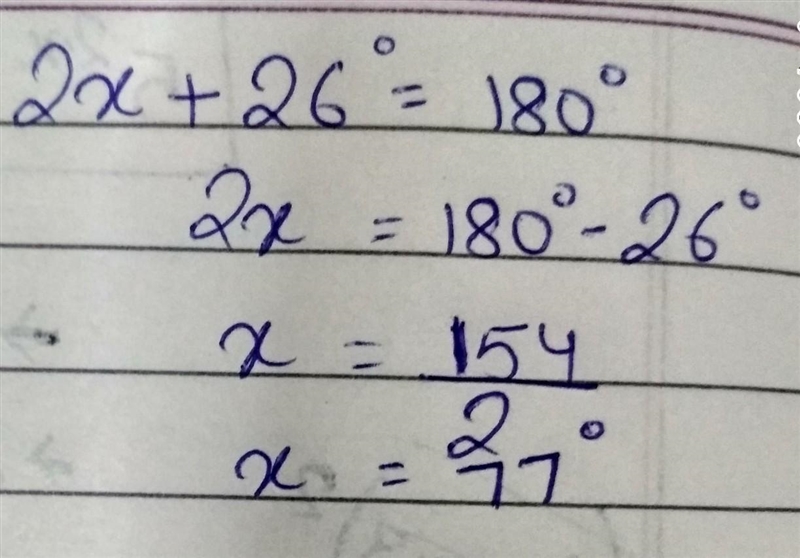 2x + 26° = 180°
2x = 180° - 26°
x = 154
2
x = 77°